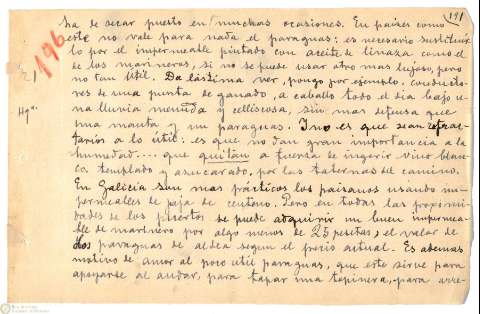 191
196
21
Hgª.
ha de secar puesto en muchas ocasiones. En países como
este no vale para nada el paraguas; es necesario sustituir
lo por el impermeable pintado con aceite de linaza como el
de los marineros, si no se puede usar otro mas lujoso, pero
no tan útil. Da lástima ver, pongo por ejemplo, conducto-
res de una punta de ganado, a caballo todo el dia bajo u-
na lluvia menuda y celliscosa, sin mas defensa que
una manta y un paraguas. Y no es que sean refrac-
tarios a lo útil: es que no dan gran importancia a la
humedad.... que quitan a fuerza de ingerir vino blan-
co, templado y azucarado, por las tabernas del camino.
En Galicia son mas prácticos los paisanos usando im-
permeables de paja de centeno. Pero en todas las proximi-
dades de los puertos se puede adquirir un buen impermea-
ble de marinero por algo menos de 25 pesetas, el valor de
dos paraguas de aldea segun el precio actual. Es ademas
motivo de amor al poco util paraguas, que este sirve para
apoyarse al andar, para tapar una topinera, para arre-